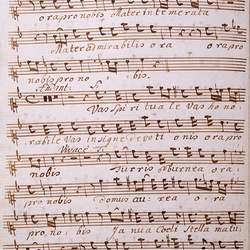 ora pro nobis Mater intemerata
Mater admirabilis ora ora pro
nobis pro no bis.
Vas Spi ri tua le Vas ho no
rabile Vas insigne devoti onis ora pro
Vivace
nobis Turris eburnea ora
pro nobis Domus au rea ora
pro no bis Ja nua Coeli Stella matu